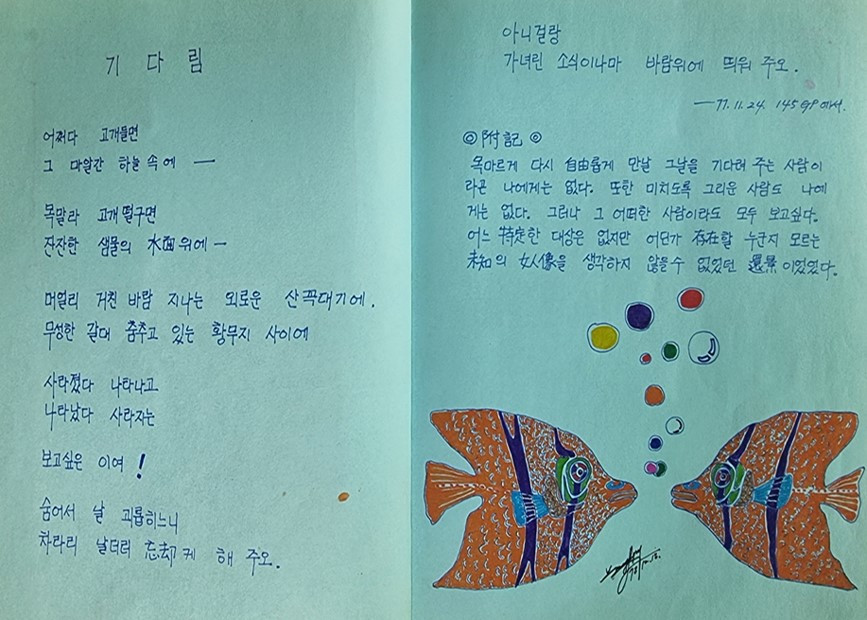 기 다 림
어쩌다 고개들면
그 마알간 하늘 속에 —
목말라 고개 떨구면
잔잔한 샘물의 水面위에 —
머얼리 거친 바람 지나는 외로운 산꼭대기에.
무성한 갈대 춤추고 있는 황무지 사이에
사라졌다 나타나고
나타났다 사라지는
보고싶은 이여 !
숨어서 날 괴롭히느니
차라리 날더러 忘却케 해 주오.
아니걸랑
가녀린 소식이나마 바람위에 띄워 주오.
— 77. 11. 24. 145GP에서.
◎ 附記 ◎
목마르게 다시 自由롭게 만날 그날을 기다려 주는 사람이
라곤 나에게는 없다. 또한 미치도록 그리운 사람도 나에
게는 없다. 그러나 그 어떠한 사람이라도 모두 보고싶다.
어느 特定한 대상은 없지만 어딘가 存在할 누군지 모르는
未知의 女人像을 생각하지 않을수 없었던 還景이었었다.